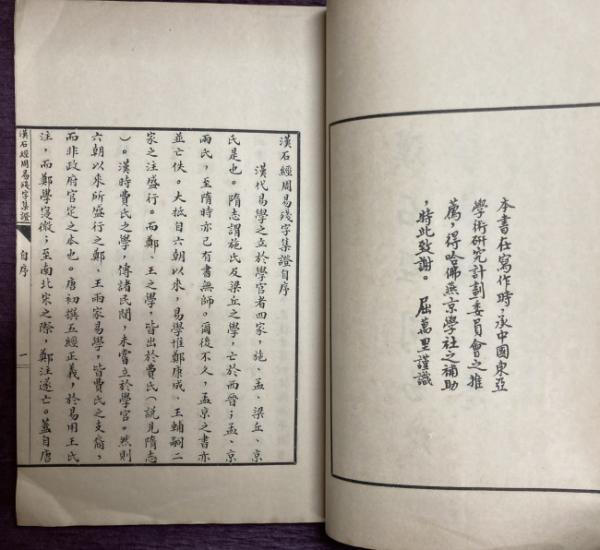 本書在寫作時,承中國東亞
學術研究計劃委員會之推
薦,得哈佛燕京學社之補助
,特此致謝。 屈萬里謹識
漢石經周易殘字集證自序
漢代易學之立於學官者四家,施、孟、梁丘、京
氏是也。隋志謂施氏及梁丘之學,亡於西晉;孟、京
兩氏,至隋時亦已有書無師。爾後不久,孟京之書亦
並亡佚。大抵自六朝以來,易學惟鄭康成、王輔嗣二
家之注盛行。而鄭、王之學,皆出於費氏(說見隋志
)。漢時費氏之學,傳諸民間,未嘗立於學官。然則
六朝以來所盛行之鄭、王兩家易學,皆費氏之支裔,
而非政府官定之本也。唐初撰五經正義,於易用王氏
注,而鄭學寖微;至南北宋之際,鄭注遂亡。蓋自唐
漢石經周易殘字集證 自序 一